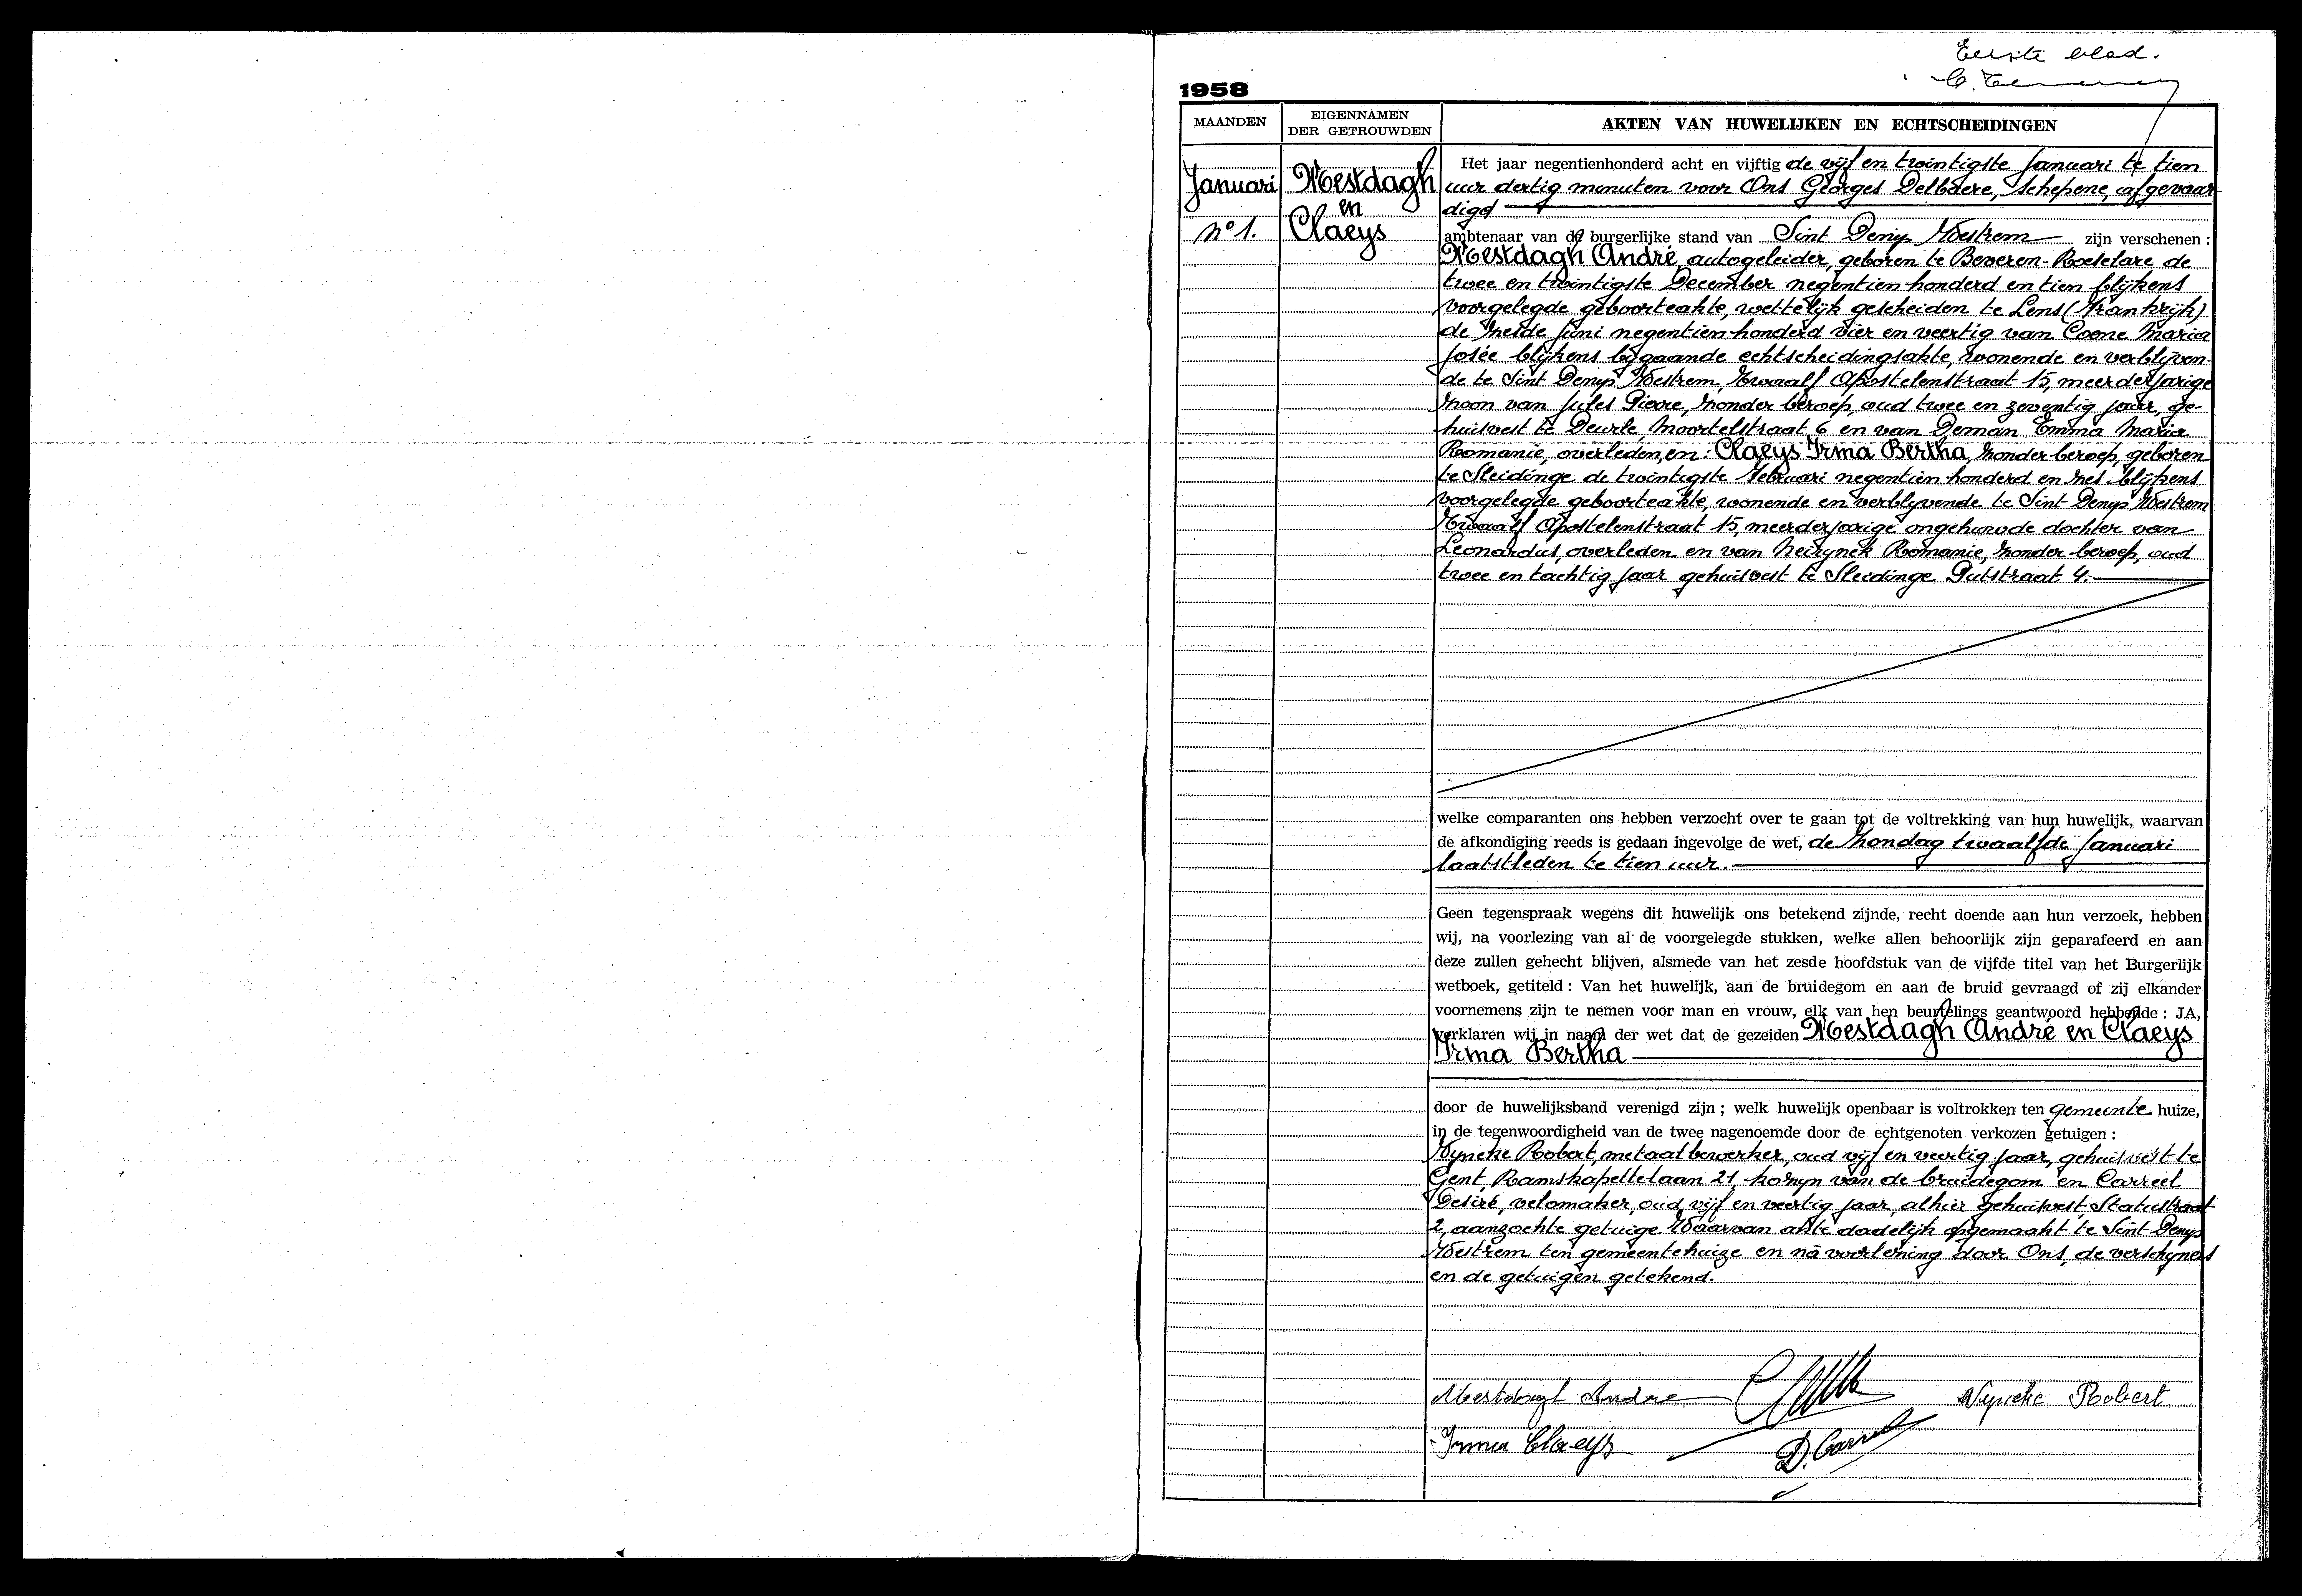 Eerste blad.
1958
MAANDEN
EIGENNAMEN
DER GETROUWDEN
AKTEN VAN HUWELIJKEN EN ECHTSCHEIDINGEN
Januari
n° 1.
Mestdagh
en
Claeys
Het jaar negentienhonderd acht en vijftig de vijf en twintigste Januari te tien
uur dertig minuten voor Ons Georges Delbaere, schepene, afgevaar-
digd
ambtenaar van de burgerlijke stand van Sint Denijs Westrem zijn verschenen :
Mestdagh André, autogeleider, geboren te Beveren-Roeselare de
twee en twintigste December negentien honderd en tien blijkens
voorgelegde geboorteakte, wettelijk gescheiden te Lens (Frankrijk)
de zesde Juni negentien honderd vier en veertig van Coene Maria
Josée blijkens bijgaande echtscheidingsakte, wonende en verblijven-
de te Sint Denijs Westrem, Twaalf Apostelenstraat 15, meerderjarige
zoon van Jules Pierre, zonder beroep, oud twee en zeventig jaar, ge-
huisvest te Deurle, Moortelstraat 6 en van Deman Emma Maria
Romanie, overleden, en : Claeys Irma Bertha, zonder beroep, geboren
te Sleidinge de twintigste Februari negentien honderd en zes blijkens
voorgelegde geboorteakte, wonende en verblijvende te Sint Denijs Westrem
Twaalf Apostelenstraat 15, meerderjarige ongehuwde dochter van
Leonardus, overleden en van Neirynck Romanie, zonder beroep, oud
twee en tachtig jaar gehuisvest te Sleidinge Putstraat 4.
welke comparanten ons hebben verzocht over te gaan tot de voltrekking van hun huwelijk, waarvan
de afkondiging reeds is gedaan ingevolge de wet, de zondag twaalfde Januari
laatstleden te tien uur.
Geen tegenspraak wegens dit huwelijk ons betekend zijnde, recht doende aan hun verzoek, hebben
wij, na voorlezing van al de voorgelegde stukken, welke allen behoorlijk zijn geparafeerd en aan
deze zullen gehecht blijven, alsmede van het zesde hoofdstuk van de vijfde titel van het Burgerlijk
wetboek, getiteld : Van het huwelijk, aan de bruidegom en aan de bruid gevraagd of zij elkander
voornemens zijn te nemen voor man en vrouw, elk van hen beurtelings geantwoord hebbende : JA,
verklaren wij in naam der wet dat de gezeiden Mestdagh André en Claeys
Irma Bertha
door de huwelijksband verenigd zijn ; welk huwelijk openbaar is voltrokken ten gemeente huize,
in de tegenwoordigheid van de twee nagenoemde door de echtgenoten verkozen getuigen :
Wyncke Robert, metaalbewerker, oud vijf en veertig jaar, gehuisvest te
Gent, Ramskapellelaan 21, kozijn van de bruidegom en Carreel
Desiré, velomaker, oud vijf en veertig jaar, alhier gehuisvest, Statiestraat
2, aanzochte getuige. Waarvan akte dadelijk opgemaakt te Sint-Denijs
Westrem ten gemeentehuize en na voorlezing door Ons, de verschijners
en de getuigen getekend.
Mestdagh André
Wyncke Robert
Irma Claeys
D. Carreel